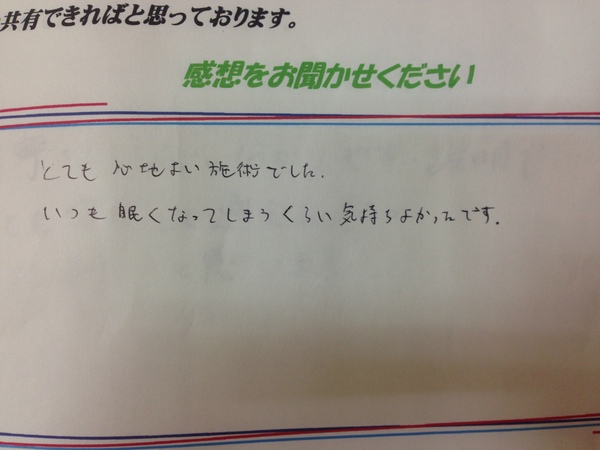 共有できればと思っております。
感想をお聞かせください
とても心地よい施術でした.
いつも眠くなってしまうくらい気持ちよかったです.